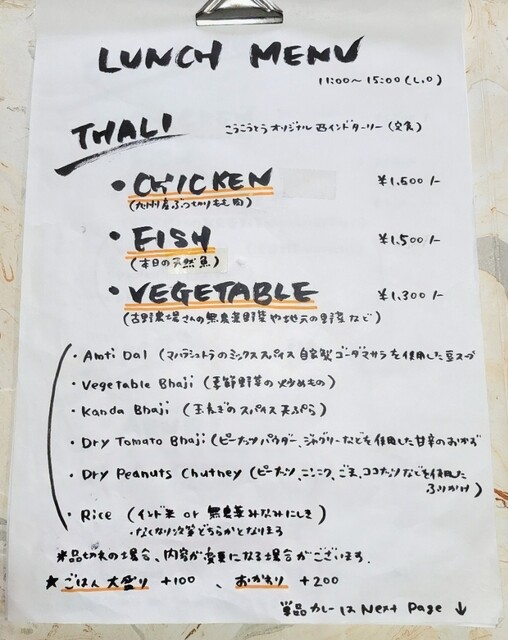 LUNCH MENU
11:00〜15:00(L.O)
THALI こうこうとうオリジナル 西インドターリー(定食)
・CHICKEN ¥1,500/-
(九州産ぶつ切りもも肉)
・FISH ¥1,500/-
(本日の天然魚)
・VEGETABLE ¥1,300/-
(古野農場さんの無農薬野菜や地元の野菜など)
・Amti Dal (マハラシュトラのミックススパイス 自家製ゴーダマサラを使用した豆スープ
・Vegetable Bhaji (季節野菜の炒めもの)
・Kanda Bhaji (玉ねぎのスパイス天ぷら)
・Dry Tomato Bhaji (ピーナッツパウダー、ジャグリーなどを使用した甘辛のおかず
・Dry Peanuts Chutney (ピーナッツ、ニンニク、ごま、ココナッツなどを使用した
ふりかけ)
・Rice (インド米 or 無農薬みなみにしき)
・なくなり次第どちらかとなります
※品切れの場合、内容が変更になる場合がございます。
★ごはん大盛り +100 、おかわり +200
単品カレーは Next Page ↓